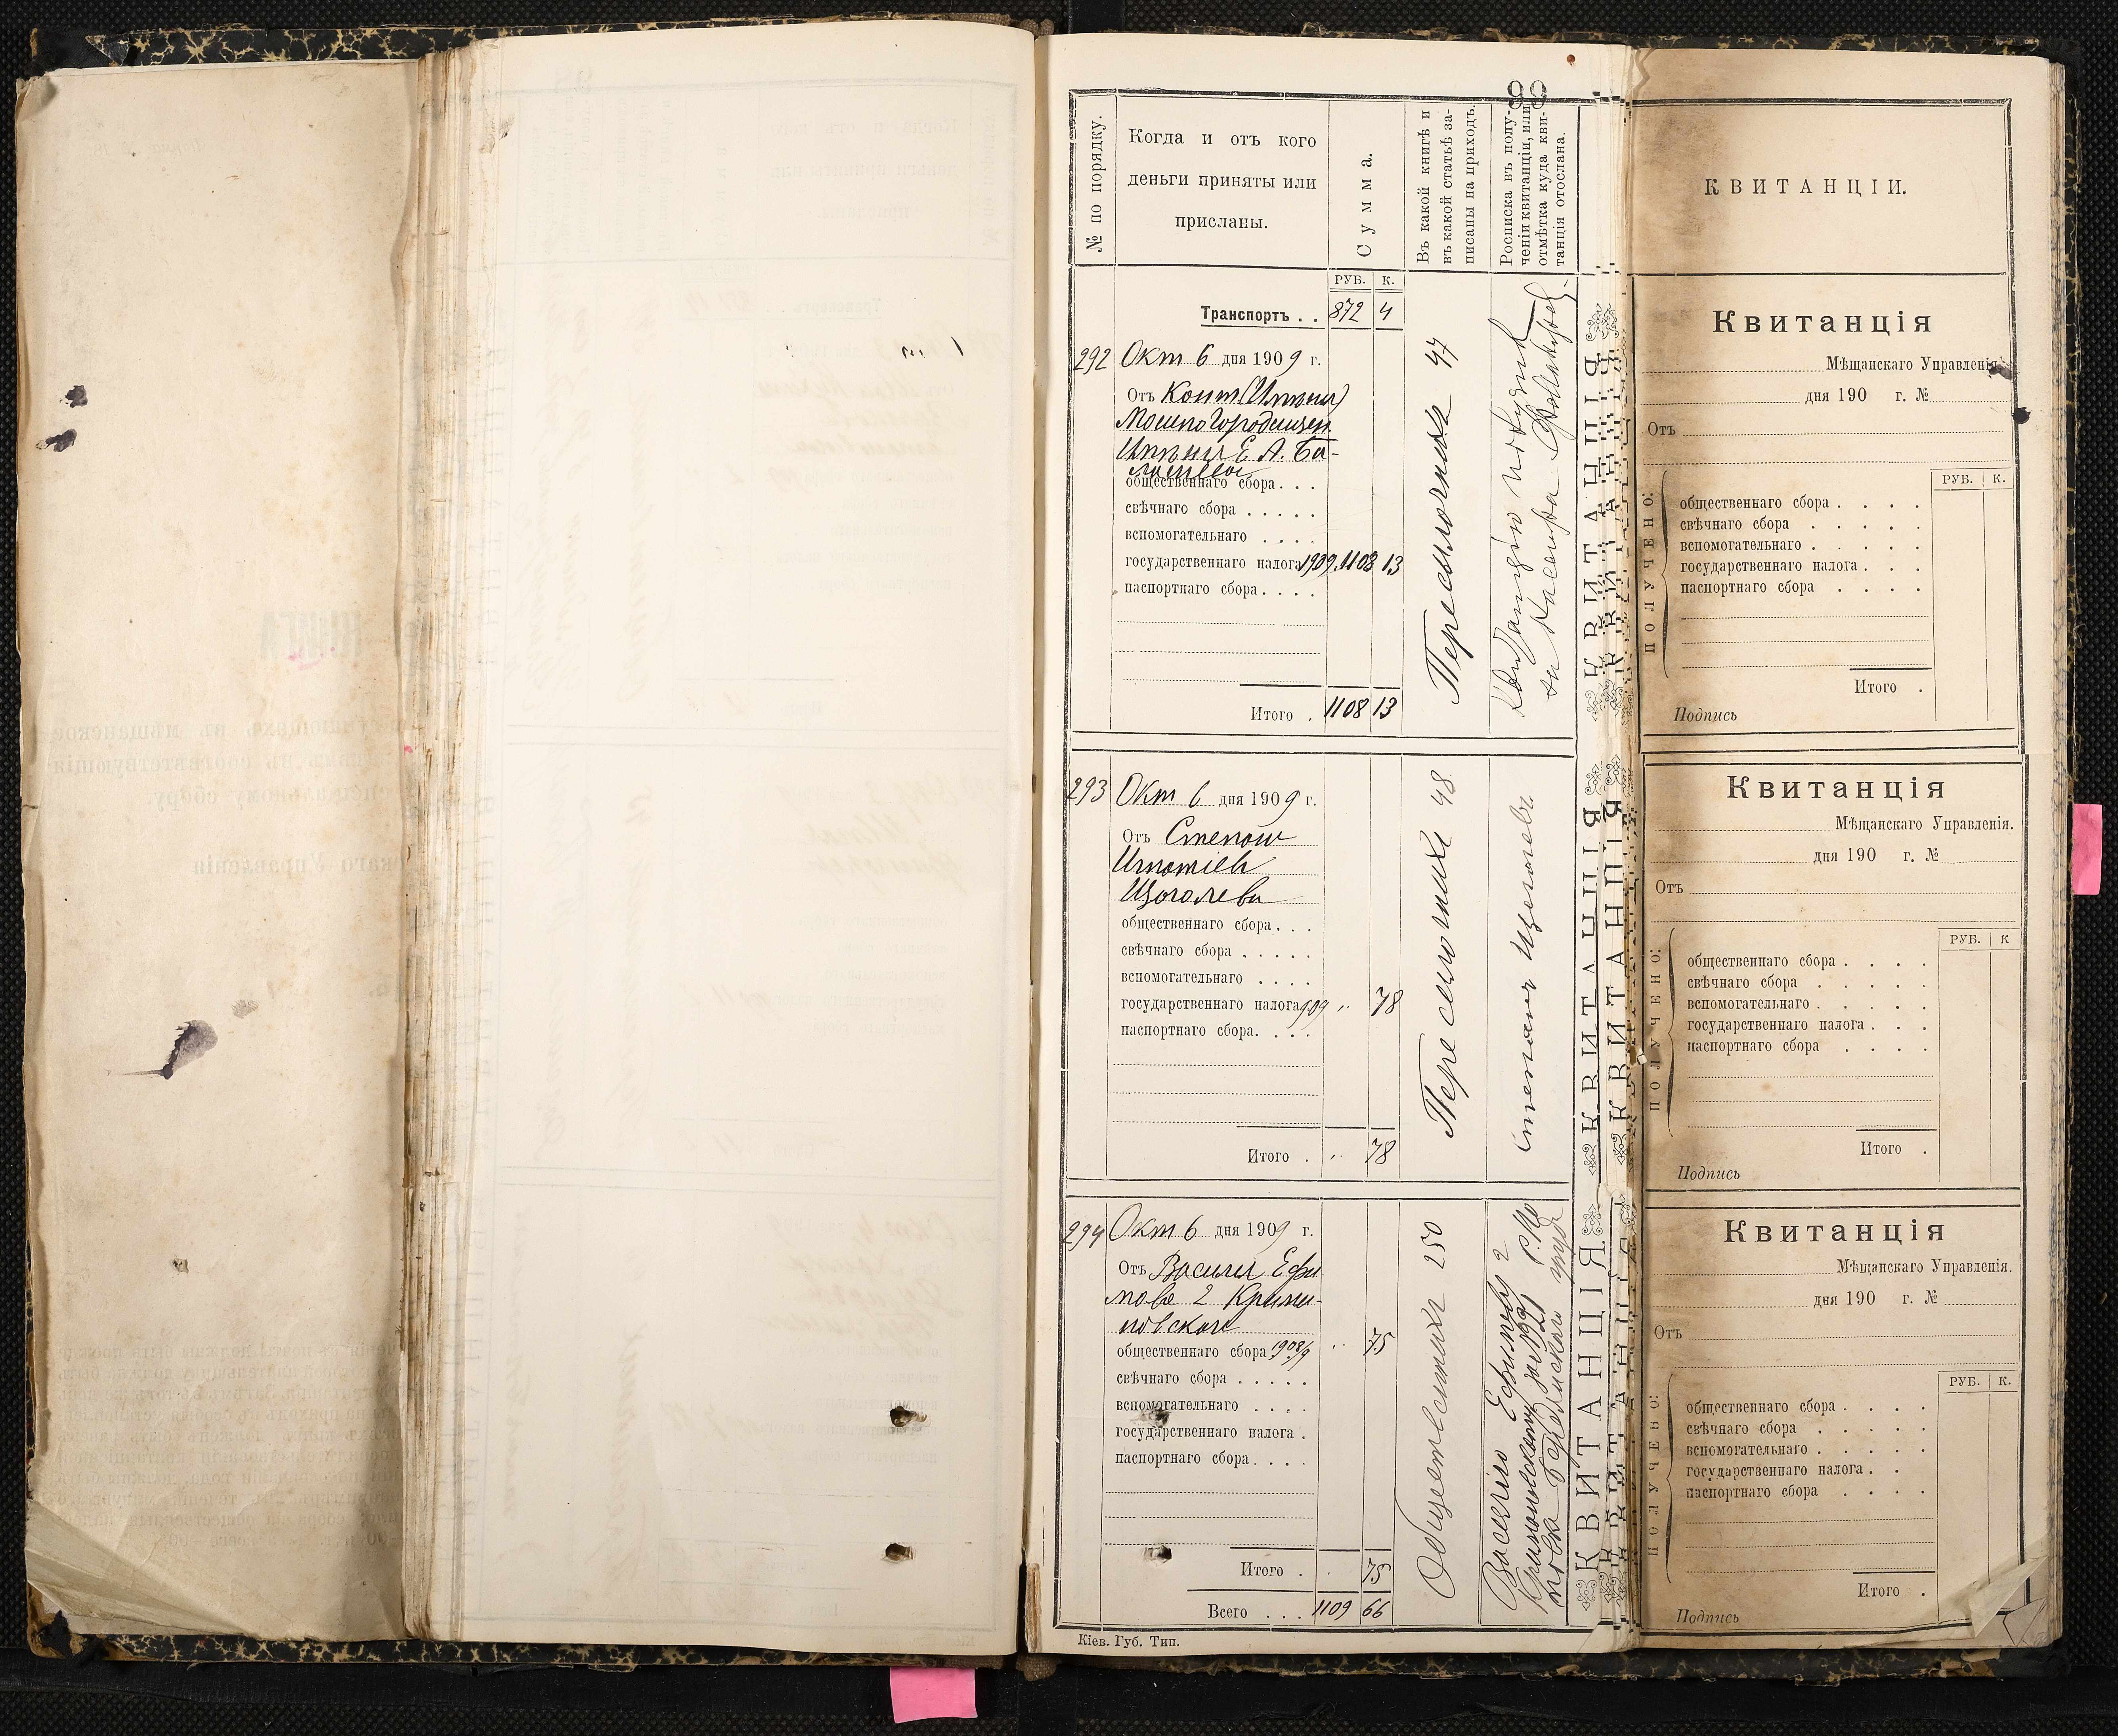 98
№ по порядку.
Когда и отъ кого
деньги приняты или
присланы.
Сумма.
Въ какой книгѣ и
въ какой статьѣ за-
писаны на приходъ.
Росписка въ полу-
ченіи квитанціи, или
отмѣтка куда кви-
танція отослана.
РУБ. К.
Транспортъ . . 872 4
292 Окт 6 дня 1909 г.
Отъ Конт. (Имѣнія)
Мошно Городищен.
Имѣнія Е. А. Ба-
лашовой
общественнаго сбора . . .
свѣчнаго сбора . . . . .
вспомогательнаго . . . .
государственнаго налога 1909. 1108 13
паспортнаго сбора . . . .
Итого . 1108 13
Пересылочныхъ 47
Квитанцію получилъ
293 Окт 6 дня 1909 г.
Отъ Степан
Игнатіев
Щоголева
общественнаго сбора . . .
свѣчнаго сбора . . . . .
вспомогательнаго . . . .
государственнаго налога 909 " 78
паспортнаго сбора . . . .
Итого . " 78
Пересылочныхъ 48
Степанъ Щеголевъ
294 Окт 6 дня 1909 г.
Отъ Василія Ефи
мова 2 Крими-
новскаго
общественнаго сбора 1908/9 " 75
свѣчнаго сбора . . . . .
вспомогательнаго . . . .
государственнаго налога .
паспортнаго сбора . . . .
Итого . 75
Всего . . . 1109 66
Общественныхъ 250
Василію Ефимову 2
Кіев. Губ. Тип.
КВИТАНЦІЯ
КВИТАНЦІЯ
КВИТАНЦІЯ
КВИТАНЦІИ.
Квитанція
Мѣщанскаго Управленія.
дня 190 г. №
Отъ
РУБ. К.
ПОЛУЧЕНО:
общественнаго сбора . . . .
свѣчнаго сбора . . . . .
вспомогательнаго . . . . .
государственнаго налога . . .
паспортнаго сбора . . . .
Итого .
Подпись
Квитанція
Мѣщанскаго Управленія.
дня 190 г. №
Отъ
РУБ. К
ПОЛУЧЕНО:
общественнаго сбора . . . .
свѣчнаго сбора . . . . .
вспомогательнаго . . . . .
государственнаго налога . . .
паспортнаго сбора . . . .
Итого .
Подпись
Квитанція
Мѣщанскаго Управленія.
дня 190 г. №
Отъ
РУБ. К.
ПОЛУЧЕНО:
общественнаго сбора . . . .
свѣчнаго сбора . . . . .
вспомогательнаго . . . . .
государственнаго налога . .
паспортнаго сбора . . . .
Итого .
Подпись